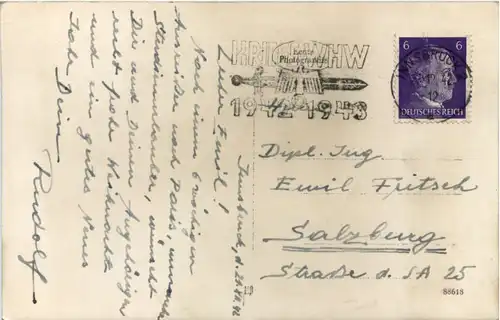 Innsbruck, d.
Lieber Emil!
Nach einem 6 wöchigen
Ausreißer nach Paris,
Studienhalber, wünscht
Dir und Deinen Angehörigen
recht frohe Weihnacht
und ein gutes Neues
Jahr Dein
Rudolf
Echte
Photographie
WHW
1942-1943
6 6
DEUTSCHES REICH
Dipl. Ing.
Emil Fritsch
Salzburg
Straße d. SA 25
88618